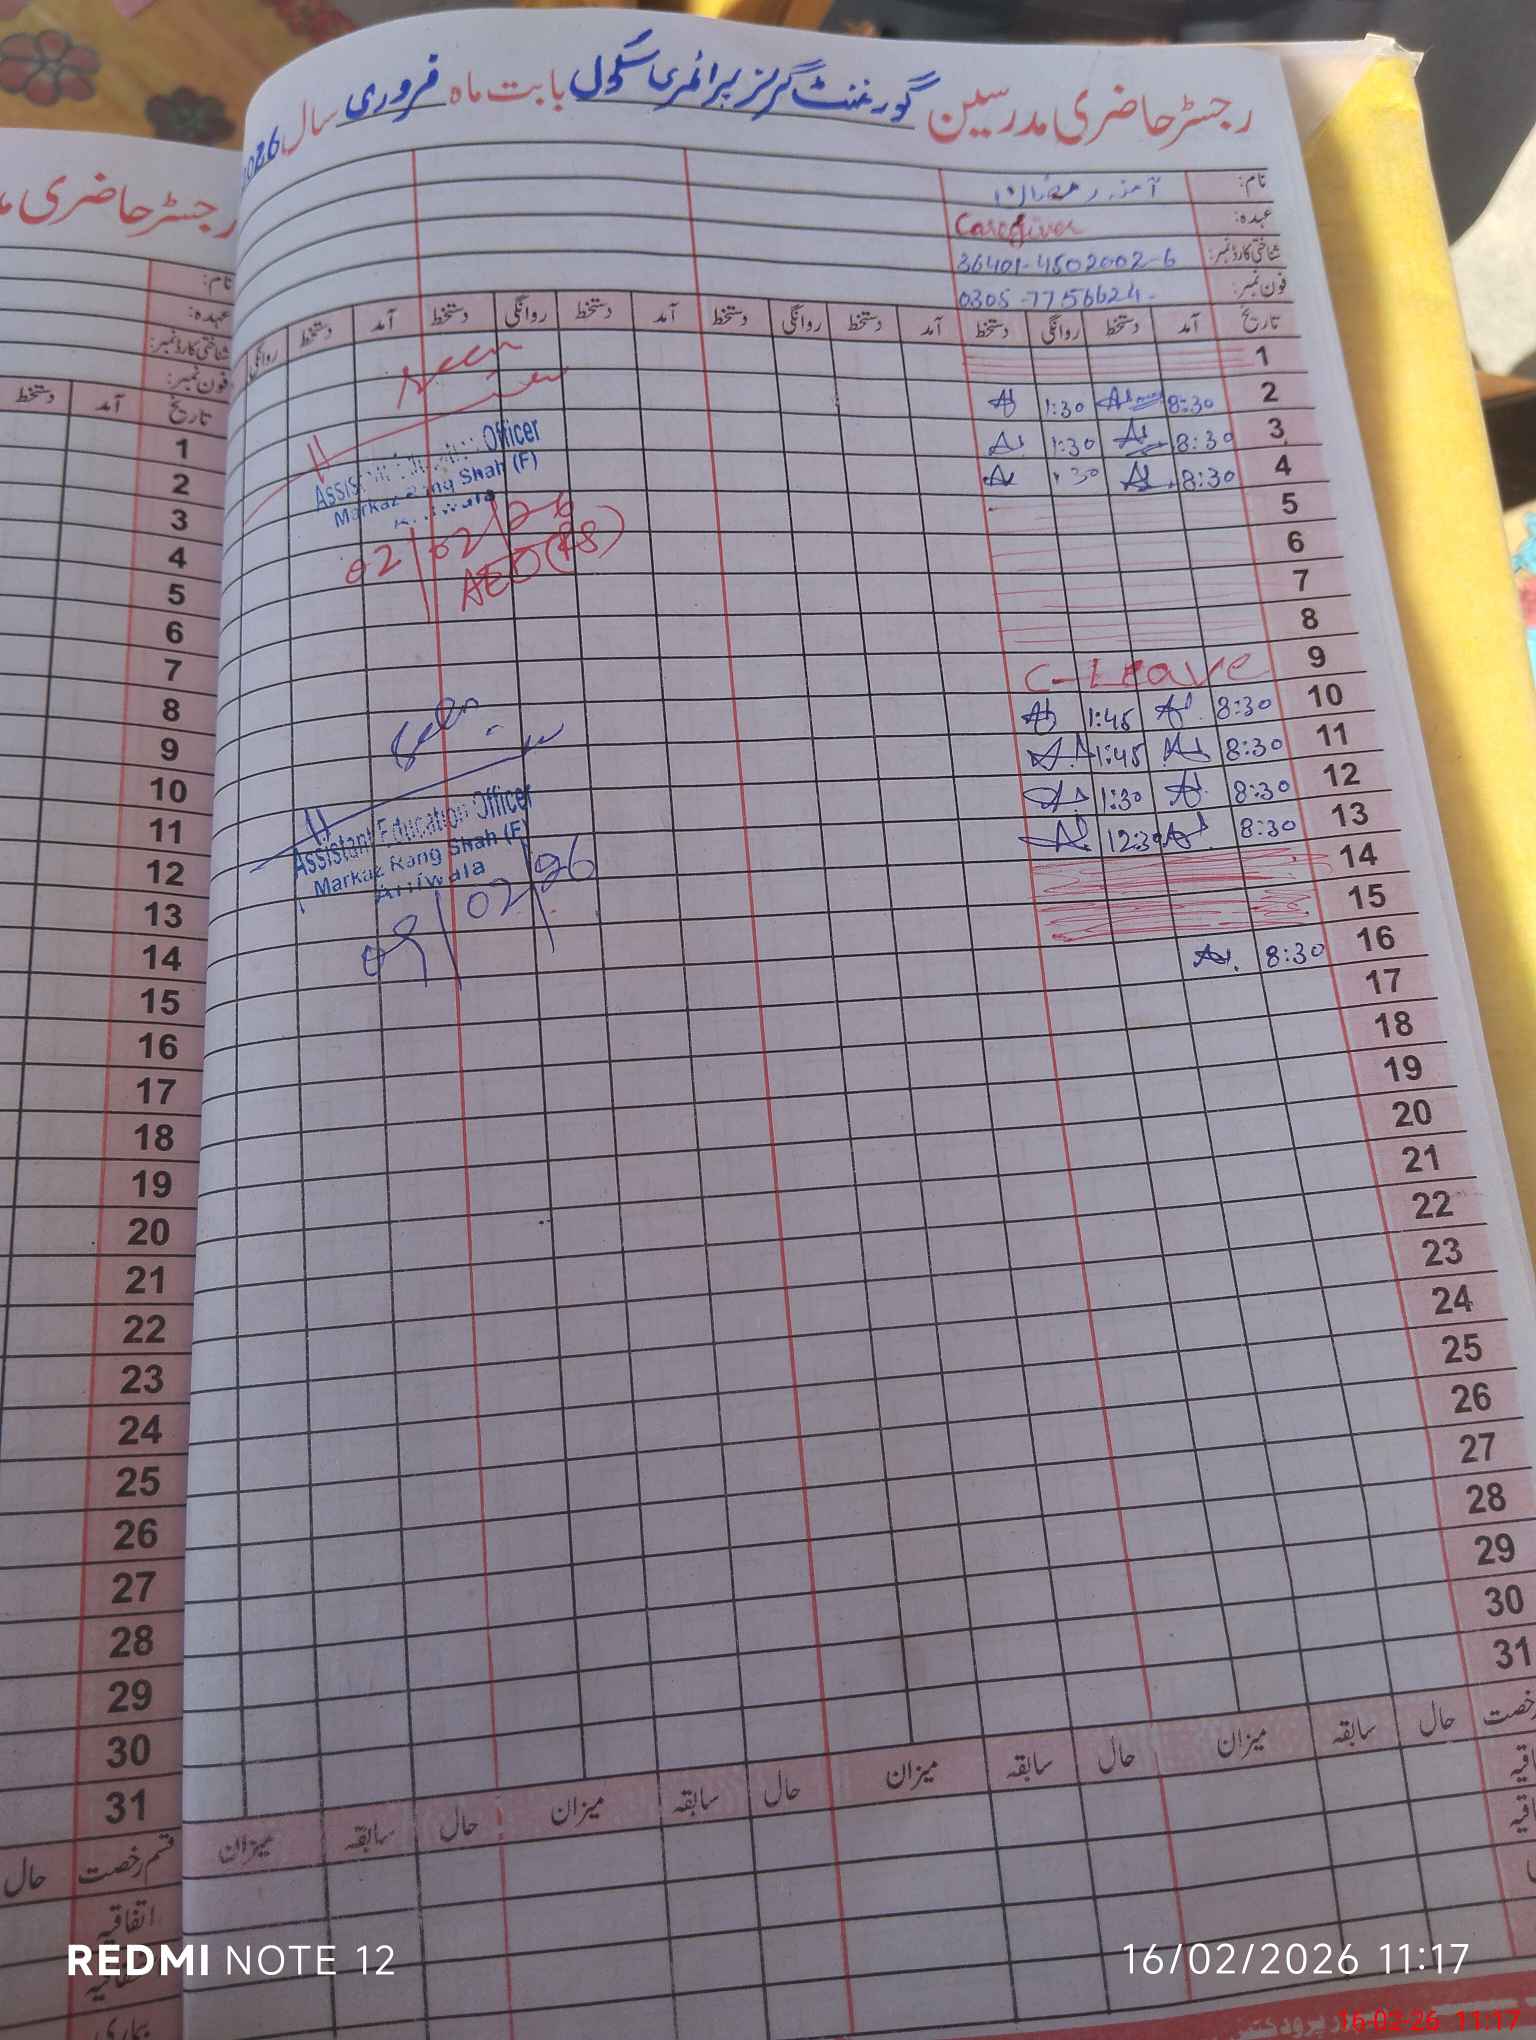 رجسٹر حاضری مدرسین گورنمنٹ گرلز پرائمری سکول بابت ماہ فروری سال 2026
نام: آمنہ رمضان
عہدہ: Caregiver
شناختی کارڈ نمبر: 36401-4502002-6
فون نمبر: 0305-7756624
تاریخ آمد دستخط روانگی دستخط آمد دستخط روانگی دستخط آمد دستخط روانگی دستخط آمد دستخط روانگی
1
2 8:30 1:30
3 8:30 1:30
4 8:30 :30
5
6
7
8
9 C-Leave
10 8:30 1:45
11 8:30 1:45
12 8:30 1:30
13 8:30 12:30
14
15
16 8:30
17
18
19
20
21
22
23
24
25
26
27
28
29
30
31
رخصت حال سابقہ میزان حال سابقہ میزان حال سابقہ میزان حال سابقہ میزان
Seen
Assistant Education Officer
Markaz Rang Shah (F)
Arifwala
02/02/26
AEO
Assistant Education Officer
Markaz Rang Shah (F)
Arifwala
09/02/26
رجسٹر حاضری
نام:
عہدہ:
شناختی کارڈ نمبر:
فون نمبر:
تاریخ آمد دستخط
1
2
3
4
5
6
7
8
9
10
11
12
13
14
15
16
17
18
19
20
21
22
23
24
25
26
27
28
29
30
31
قسم رخصت حال
اتفاقیہ
بیماری
REDMI NOTE 12
16/02/2026 11:17
16-02-26 11:17